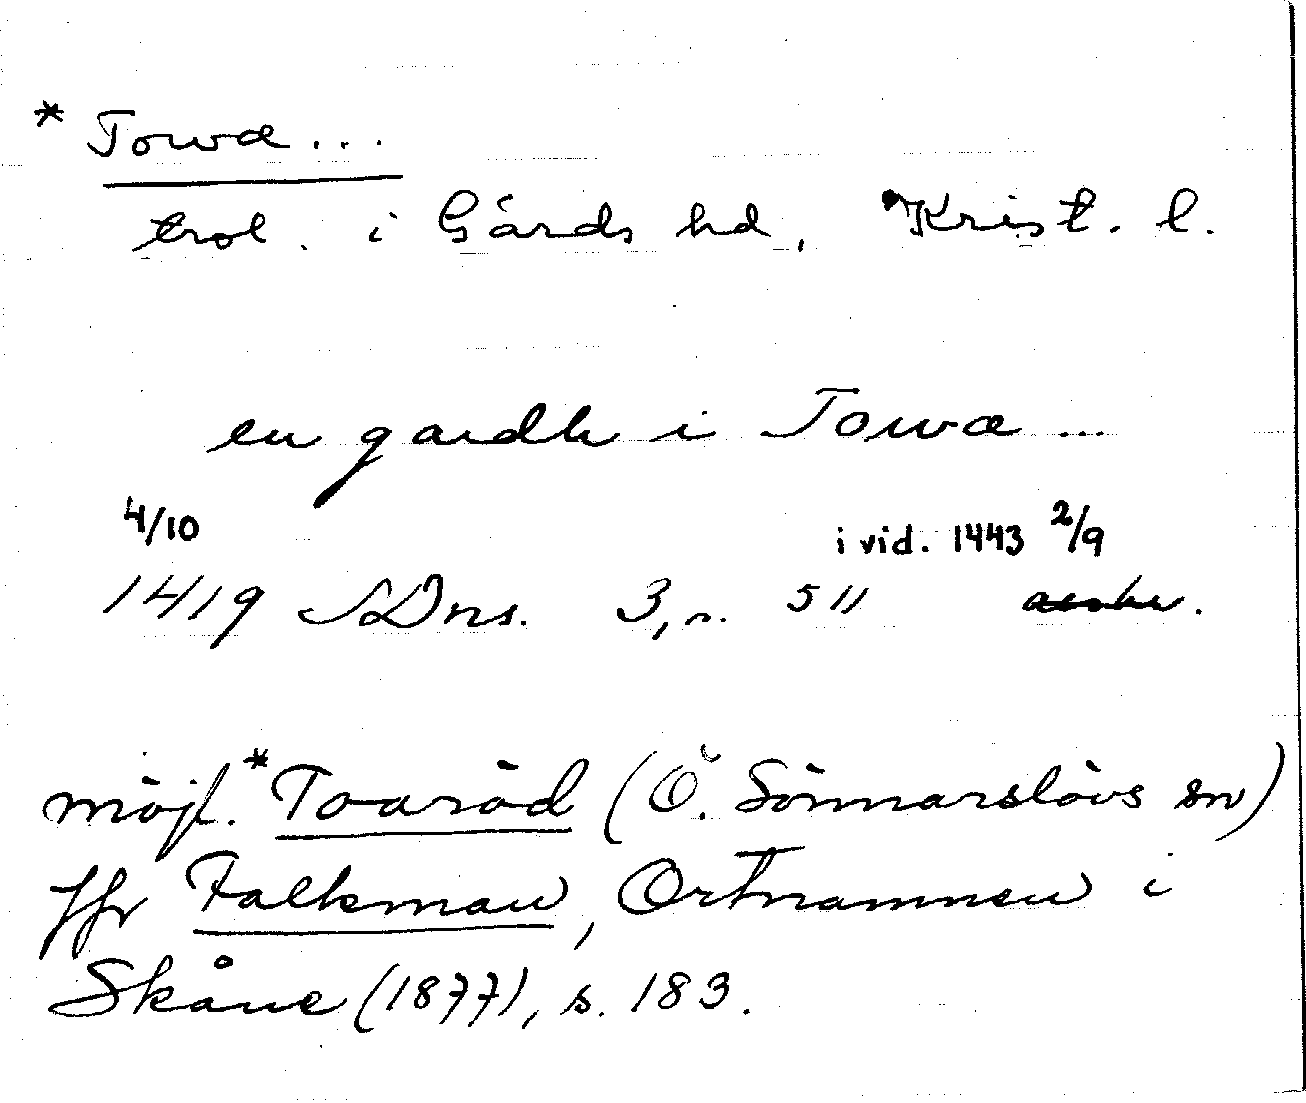 * Towæ...
trol. i Gärds hd, Krist. l.
en gardh i Towæ...
4/10 i vid. 1443 2/9
1419 SDns. 3, n. 511
möjl. *Toaröd (Ö. Sönnarslövs sn)
Jfr Falkman, Ortnamnen i
Skåne (1877), s. 183.